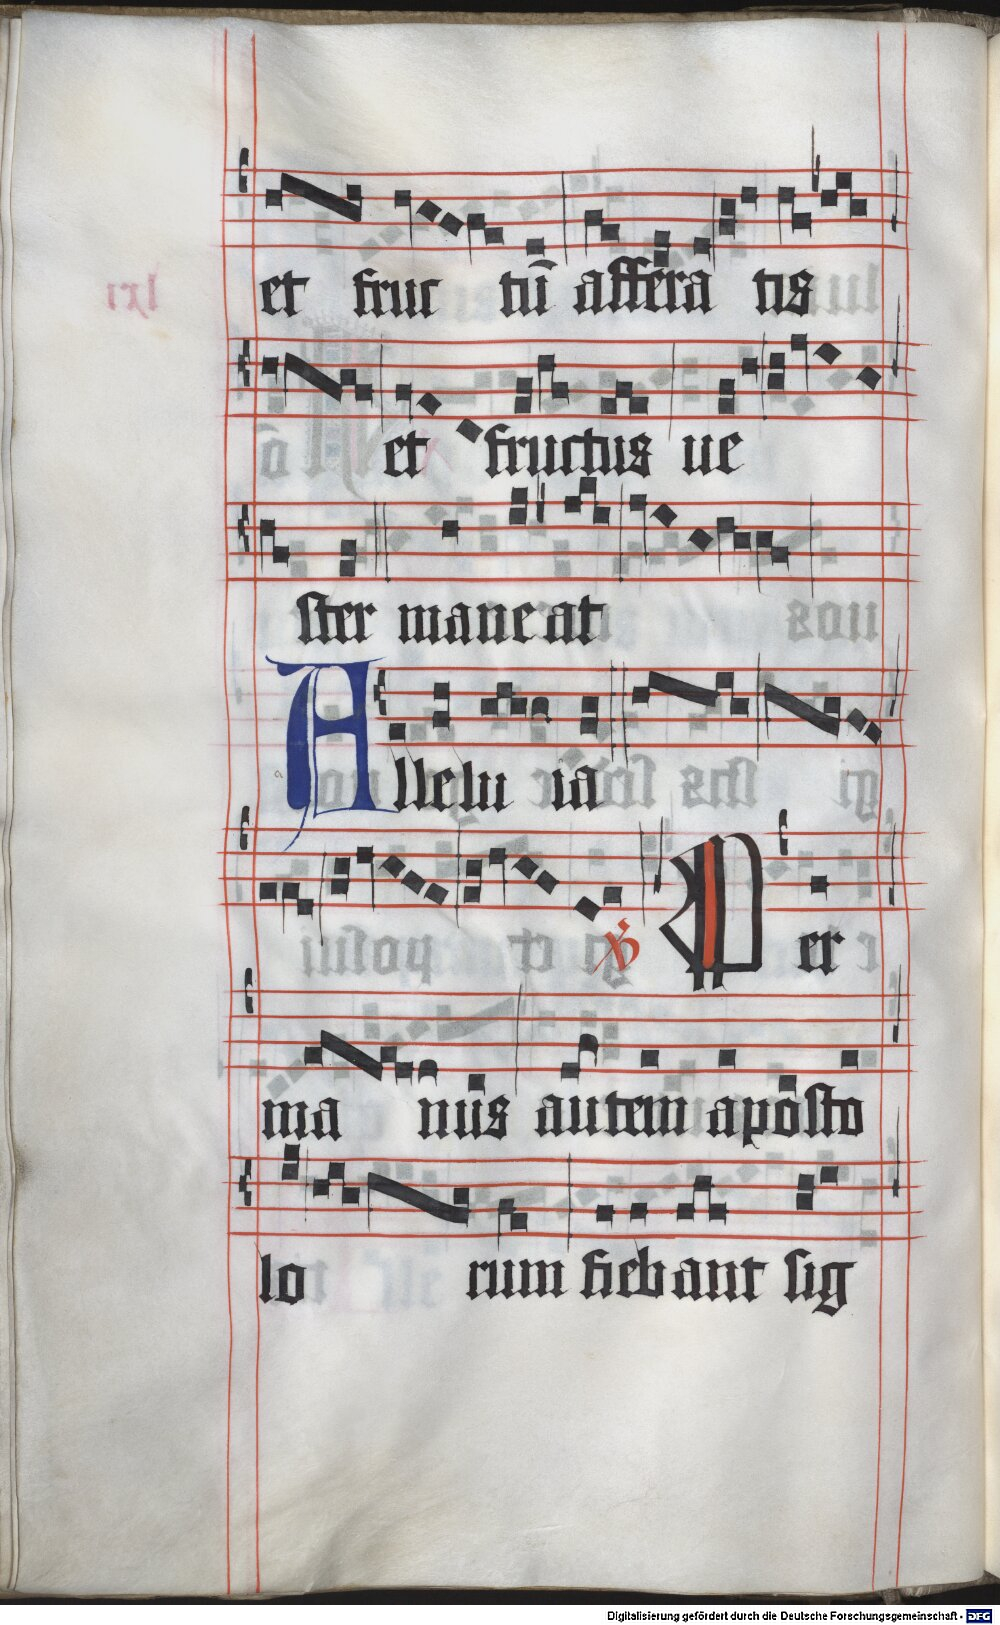 et fruc tū affera tis
et fructus ue
ster maneat
Allelu ia
℣ Per
ma nus autem aposto
lo rum fiebant sig
Digitalisierung gefördert durch die Deutsche Forschungsgemeinschaft - DFG